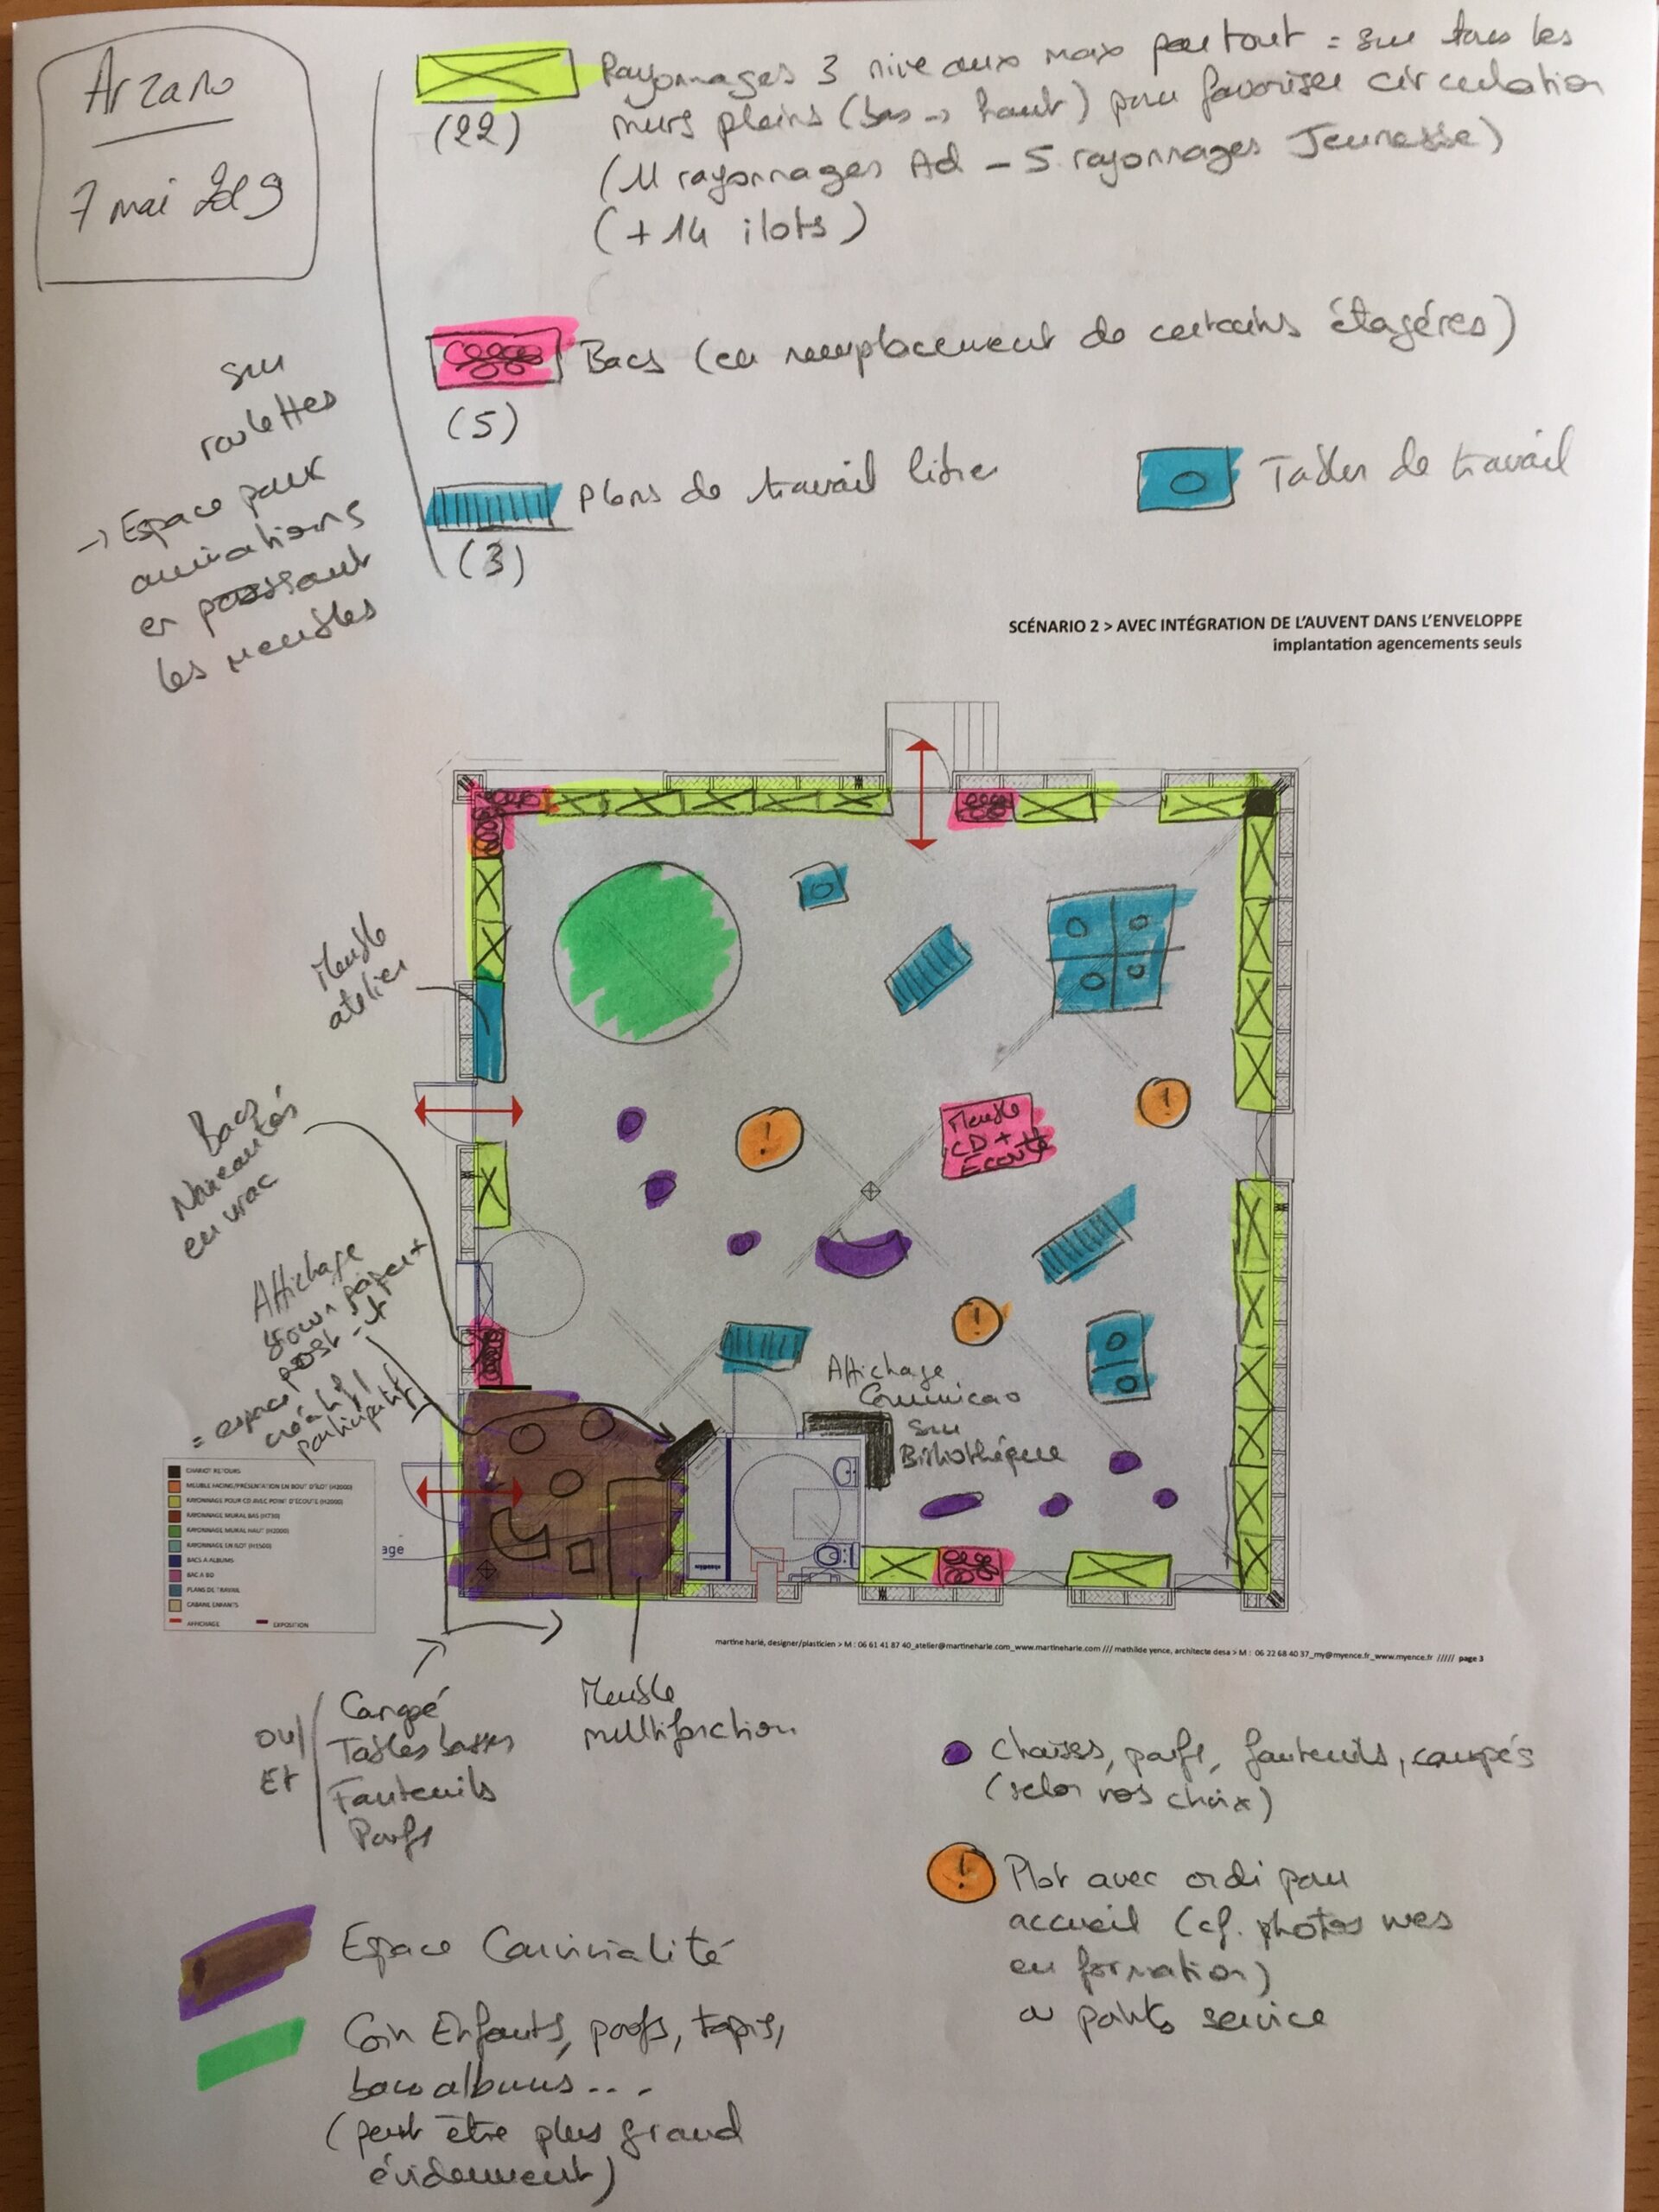 Arzano
7 mai 2019
Rayonnages 3 niveaux max partout = sur tous les
(22)
murs pleins (bas → haut) pour favoriser circulation
(11 rayonnages Ad - 5 rayonnages Jeunesse)
(+ 14 ilots)
Bacs (en remplacement de certains étagères)
(5)
Plans de travail libre
(3)
Tables de travail
sur
roulettes
→ Espace pour
animations
en poussant
les meubles
SCÉNARIO 2 > AVEC INTÉGRATION DE L'AUVENT DANS L'ENVELOPPE
implantation agencements seuls
Meuble
atelier
Bacs
Nouveautés
en vrac
Affichage
brown paper +
post-it
= espace
créatif /
participatif
Meuble
CD +
Ecoute
Affichage
Comunicao
sur
Bibliothèque
CHARIOT RETOURS
MEUBLE FACING/PRÉSENTATION EN BOUT D'ÎLOT (H2000)
RAYONNAGE POUR CD AVEC POINT D'ECOUTE (H2000)
RAYONNAGE MURAL BAS (H730)
RAYONNAGE MURAL HAUT (H2000)
RAYONNAGE EN ILOT (H1500)
BACS A ALBUMS
BAC A BD
PLANS DE TRAVAIL
CABANE ENFANTS
AFFICHAGE
EXPOSITION
age
martine harlé, designer/plasticien > M : 06 61 41 87 40_atelier@martineharle.com_www.martineharle.com /// mathilde yence, architecte desa > M : 06 22 68 40 37_my@myence.fr_www.myence.fr ///// page 3
ou/
Et
Canapé
Tables basses
Fauteuils
Poufs
Meuble
multifonction
Chaises, poufs, fauteuils, canapés
(selon vos choix)
! Plot avec ordi pour
accueil (cf. photos vues
en formation)
ou points service
Espace Convivialité
Coin Enfants, poufs, tapis,
bacs albums...
(peut être plus grand
évidemment)